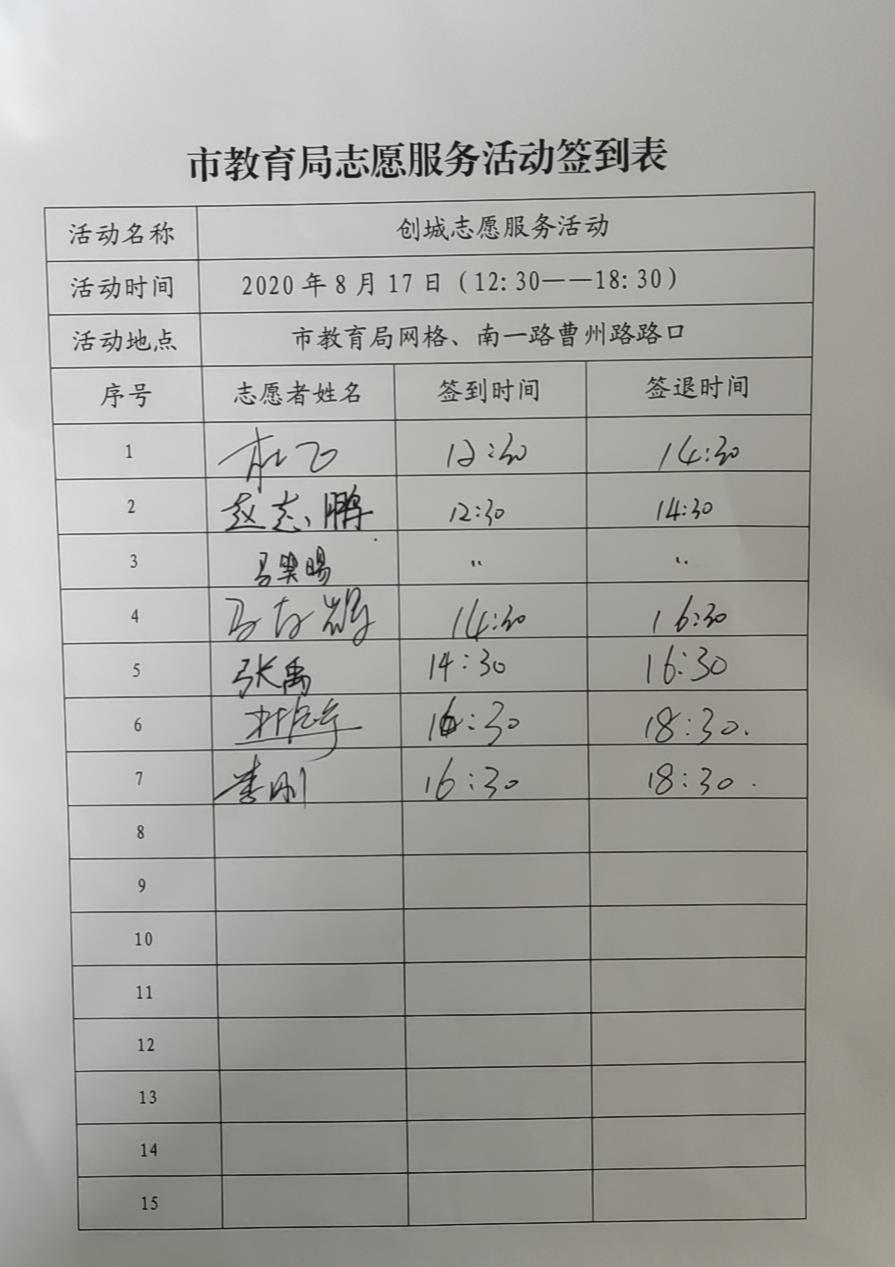 市教育局志愿服务活动签到表
活动名称 创城志愿服务活动
活动时间 2020年8月17日（12:30——18:30）
活动地点 市教育局网格、南一路曹州路路口
序号 志愿者姓名 签到时间 签退时间
1 杜飞 12:30 14:30
2 赵志鹏 12:30 14:30
3 〃 〃
4 14:30 16:30
5 张禹 14:30 16:30
6 16:30 18:30.
7 李刚 16:30 18:30.
8
9
10
11
12
13
14
15